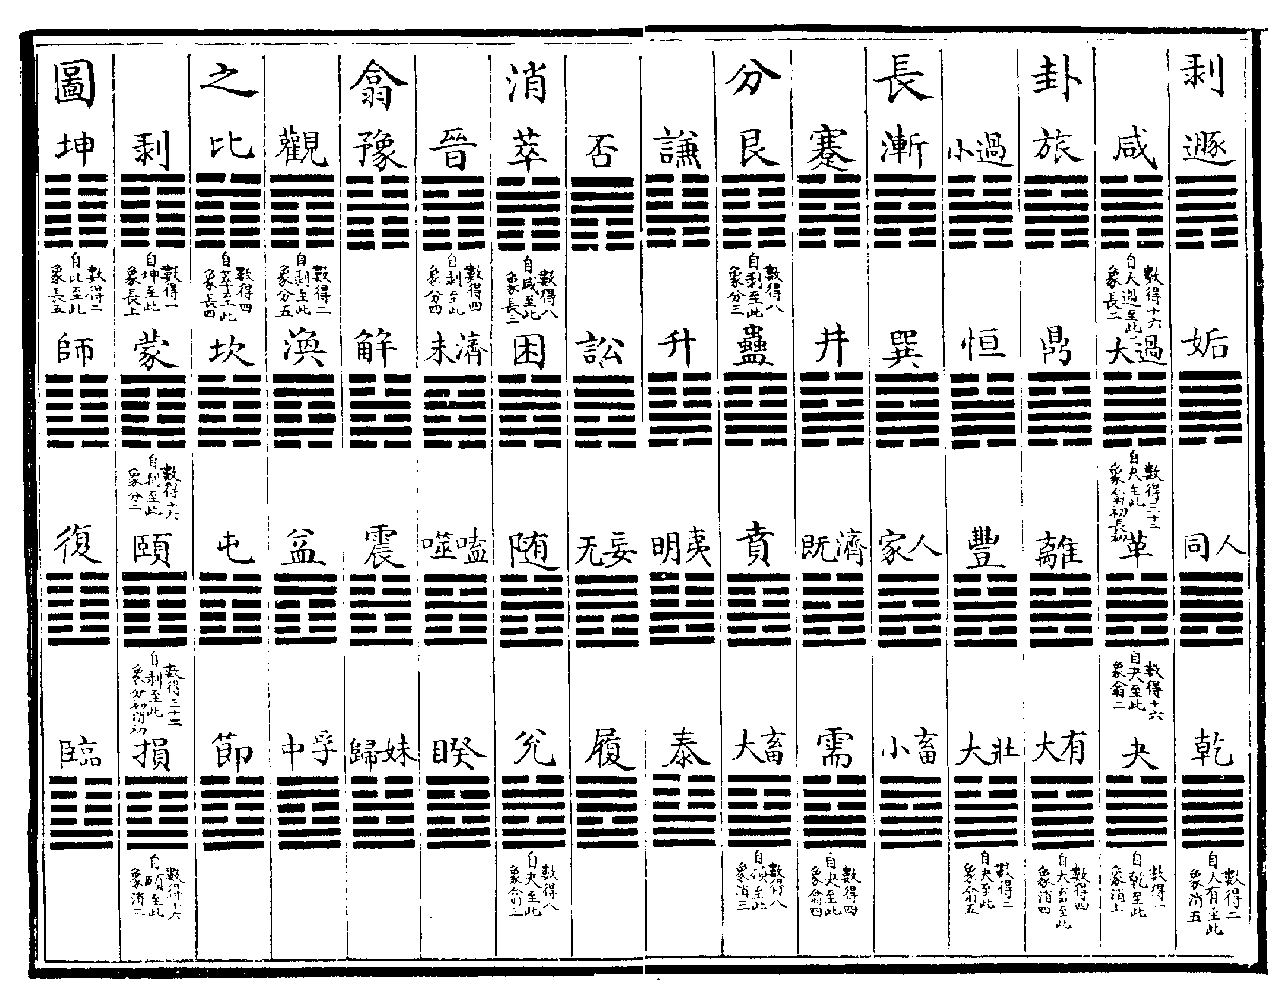 剥卦長分消翕之圖
遯
姤
同人
乾
數得二
自大有至此
象消五
咸
數得十六
自大過至此
象長二
大過
數得三十二
自夬至此
象翕初長初
革
數得十六
自夬至此
象翕二
夬
數得一
自乾至此
象消上
旅
鼎
離
大有
數得四
自大畜至此
象消四
小過
恒
豐
大壯
數得二
自夬至此
象翕五
漸
巽
家人
小畜
蹇
井
既濟
需
數得四
自夬至此
象翕四
艮
數得八
自剥至此
象分三
蠱
賁
大畜
數得八
自損至此
象消三
謙
升
明夷
泰
否
訟
无妄
履
萃
數得八
自咸至此
象長三
困
随
兊
數得八
自夬至此
象翕三
晉
數得四
自剥至此
象分四
未濟
噬嗑
睽
豫
解
震
歸妹
觀
數得二
自剥至此
象分五
渙
益
中孚
比
數得四
自萃至此
象長四
坎
屯
節
剥
數得一
自坤至此
象長上
蒙
數得十六
自剥至此
象分二
頤
數得三十二
自剥至此
象分初消初
損
數得十六
自頤至此
象消二
坤
數得二
自比至此
象長五
師
復
臨